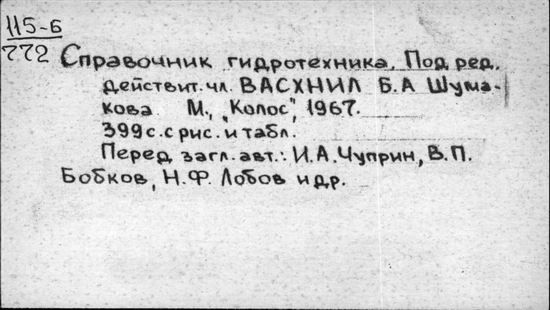 115-Б
772
Справочник гидротехника. Под ред.
действит. чл. ВАСХНИЛ Б.А Шума-
кова М., „Колос", 1967.
399 с. с рис. и табл.
Перед загл. авт.: И.А.Чуприн, В.П.
Бобков, Н.Ф. Лобов и др.